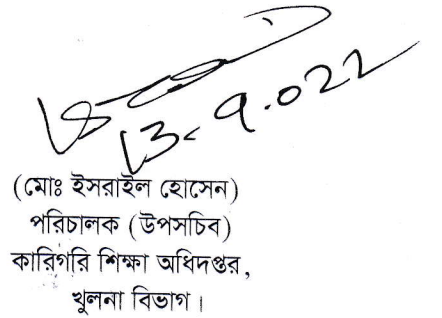 13.9.022
(মোঃ ইসরাইল হোসেন)
পরিচালক (উপসচিব)
কারিগরি শিক্ষা অধিদপ্তর,
খুলনা বিভাগ।